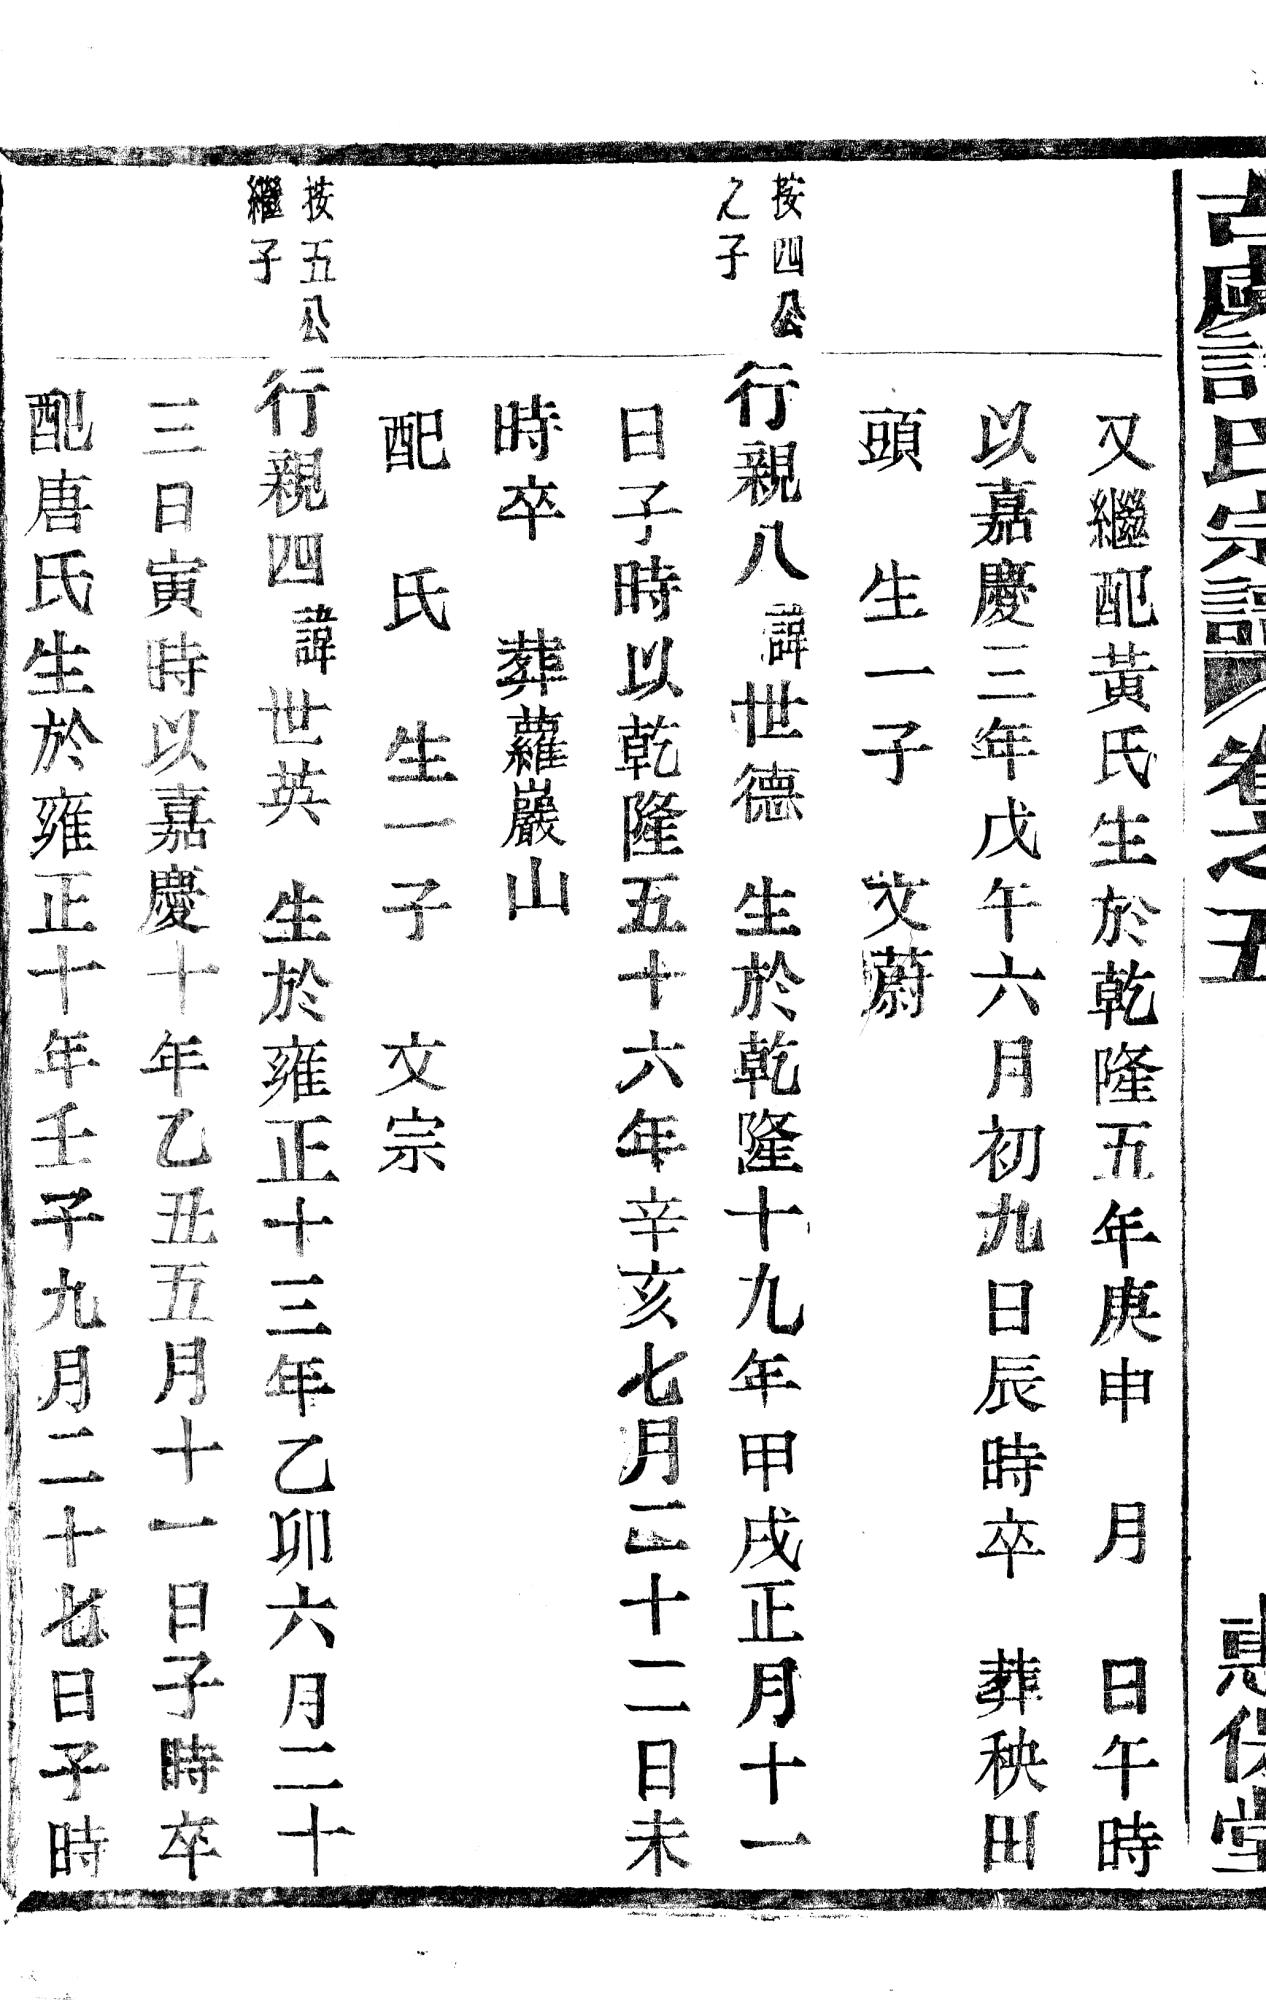 氏宗譜卷之五
惠保堂
又繼配黃氏生於乾隆五年庚申　月　日午時
以嘉慶三年戊午六月初九日辰時卒　葬秧田
頭　生一子　文蔚
按四公
之子
行親八諱世德　生於乾隆十九年甲戌正月十一
日子時以乾隆五十六年辛亥七月二十二日未
時卒　葬蘿巖山
配　氏　生一子　文宗
按五公
繼子
行親四諱世英　生於雍正十三年乙卯六月二十
三日寅時以嘉慶十年乙丑五月十一日子時卒
配唐氏生於雍正十年壬子九月二十七日子時